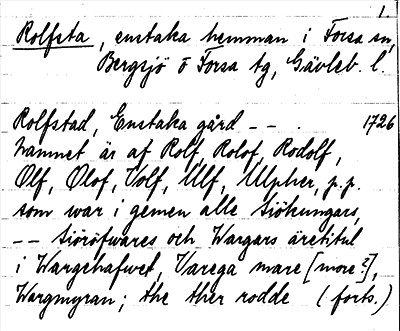 1
Rolfsta, enstaka hemman i Forsa sn,
Bergsjö o Forsa tg, Gävleb. l.
Rolfstad, Enstaka gård -- . 1726
namnet är af Rolf, Rolof, Rodolf,
Olf, Olof, Volf, Ulf, Ulpher, p.p.
som war i gemen alle Siökungars,
-- Siöröfwares och Wargars äretitul
i Wargehafwet, Varega mare [more?],
Wargmyran; the ther rodde (forts.)